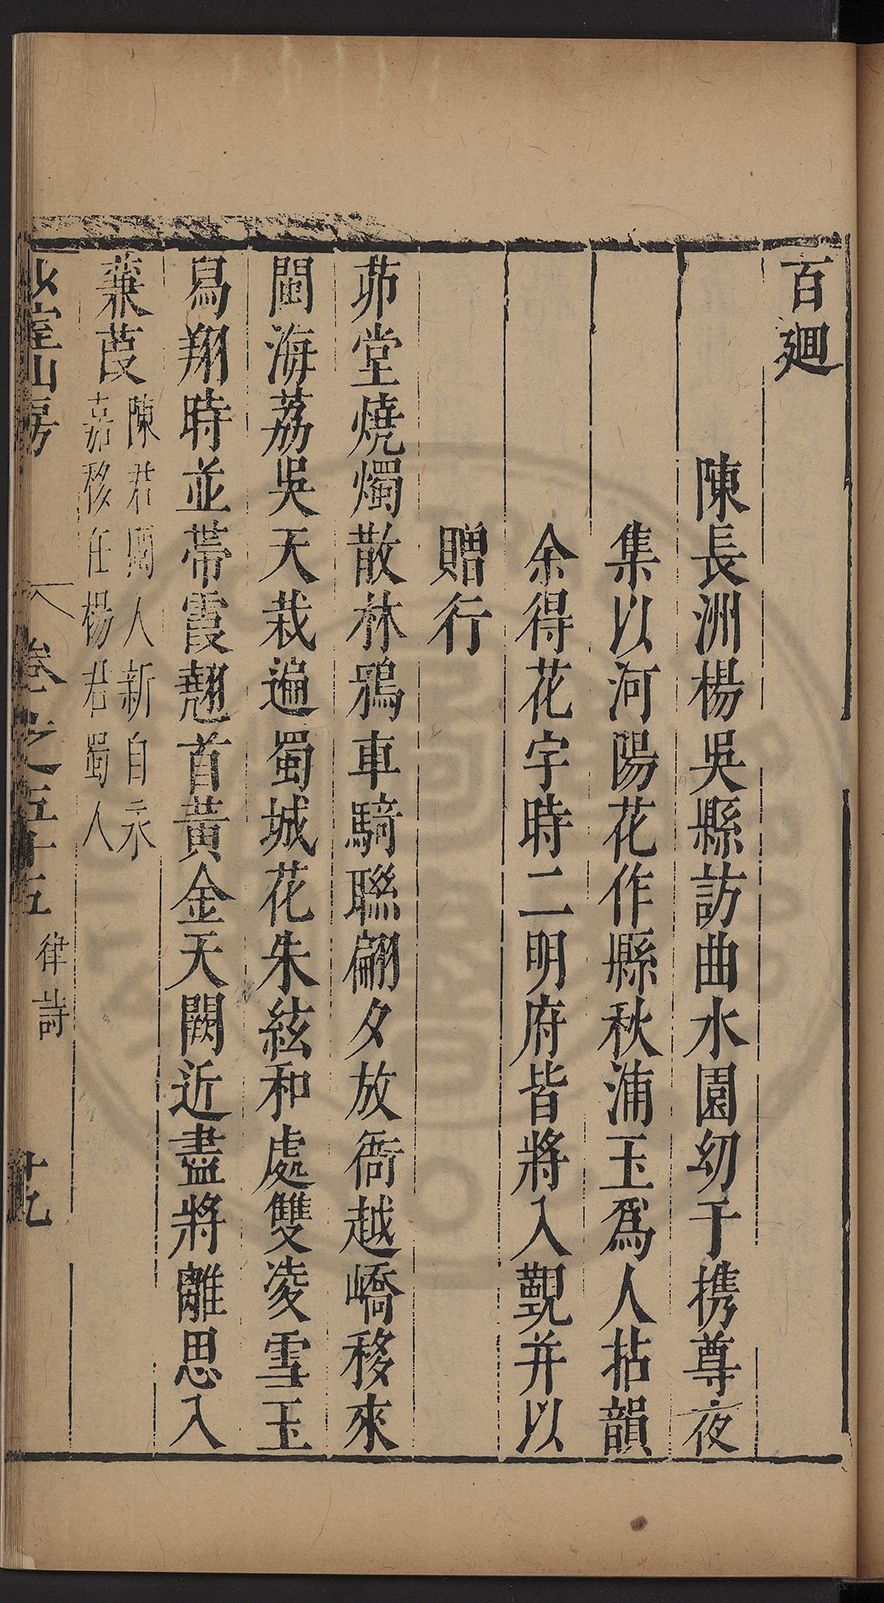 百𢌞
陳長洲楊吳縣訪曲水園幼于携尊夜
集以河陽花作縣秋浦玉爲人拈韻
余得花字時二明府皆將入覲并以
贈行
茆堂燒燭散林鴉車騎聯翩夕放衙越嶠移來
閩海荔吳天栽遍蜀城花朱絃和處雙凌雪玉
舄翔時並帶霞翹首黃金天闕近盡將離思入
蒹葭
陳君閩人新自永
嘉移任楊君蜀人
少室山房
卷之五十五
律詩
廿九